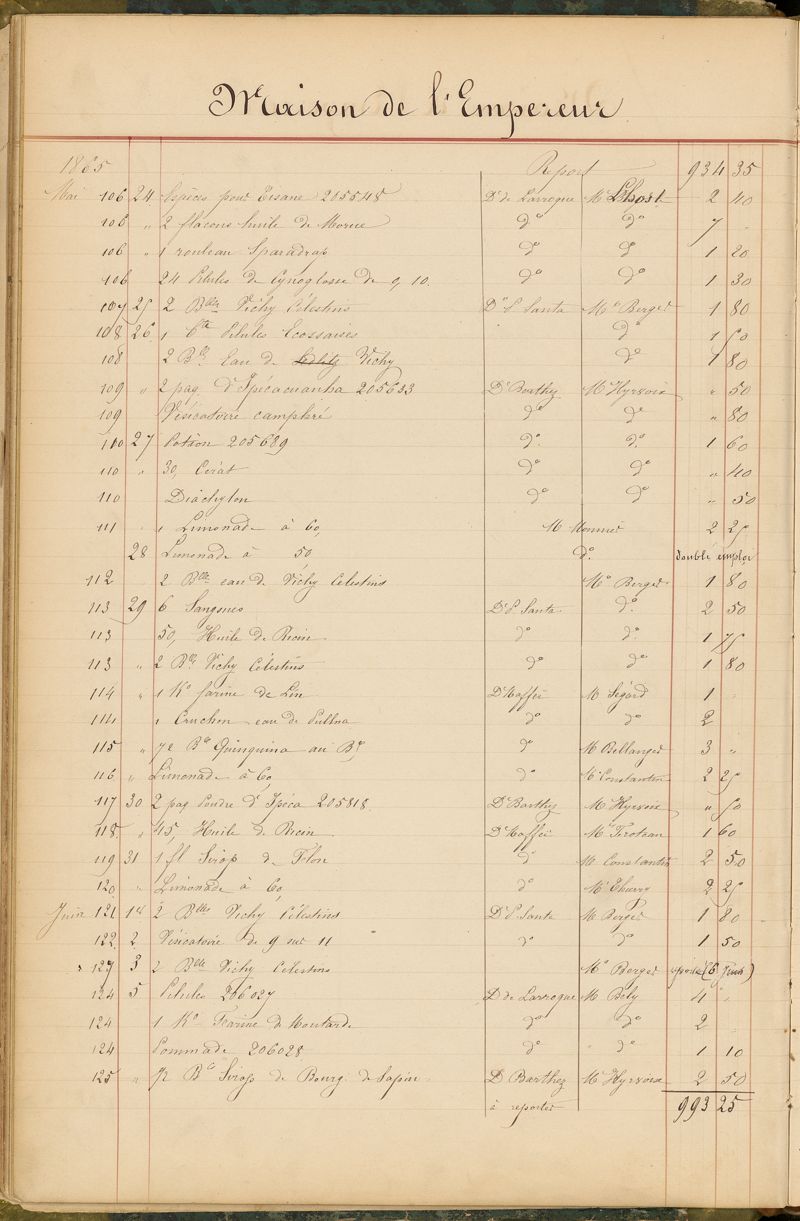 Maison de l'Empereur
1865 Report 934 35
Mai 106 24 Espèces pour Tisane 205548 Dr de Larroque Mr Lhost 2 40
106 " 2 flacons huile de Morue do do 7 "
106 " 1 rouleau Sparadrap do do 1 20
106 24 Pilules de Cynoglosse de 0,10. do do 1 30
107 25 2 Blles Vichy Célestins Dr P. Santa Me Berger 1 80
108 26 1 Bte Pilules Ecossaises do 1 50
108 2 Blles Eau de Sedlitz Vichy do 1 80
109 " 2 paq. d'Ipécacuanha 205633 Dr Barthez Me Hyrvoix " 50
109 Vésicatoire camphré do do " 80
110 27 Potion 205689 do. do. 1 60
110 " 30, Cérat do do " 40
110 Diachylon do do " 50
111 " 1 Limonade à 60, Mr Monnier 2 25
28 Limonade à 50 do. double emploi
112 2 Blles eau de Vichy Célestins Me Berger 1 80
113 29 6 Sangsues Dr P. Santa do. 2 50
113 50, Huile de Ricin do do. 1 75
113 " 2 Blles Vichy Célestins do do 1 80
114 " 1 Ko farine de Lin Dr Maffei Mr Ségard 1 "
114 1 Cruchon eau de Pullna do do 2
115 " 1/2 Blle Quinquina au Bx do Mr Bellanger 3 "
116 " Limonade à 60, do Mr Constantin 2 25
117 30 2 paq Poudre d'Ipéca 205818. Dr Barthez Me Hyrvoix " 50
118. " 45, Huile de Ricin Dr Maffei Me Froteau 1 60
119 31 1 fl Sirop de Flon do Mr Constantin 2 50
120 " Limonade à 60, do 2 25
Juin 121 1er 2 Blles Vichy Célestins Dr P. Santa Me Berger 1 80
122. 2 Vésicatoire de 9 sur 11 do do 1 50
123 3 2 Blles Vichy Célestins Me Berger (6 Juin)
124 5 Pilules 206027 Dr de Larroque Mr Bely 4 "
124 1 Ko Farine de Moutarde do do 2
124 Pommade 206028 do do 1 10
125 " 1/2 Blle Sirop de Bourg. de Sapin Dr Barthez Me Hyrvoix 2 50
à reporter 993 25